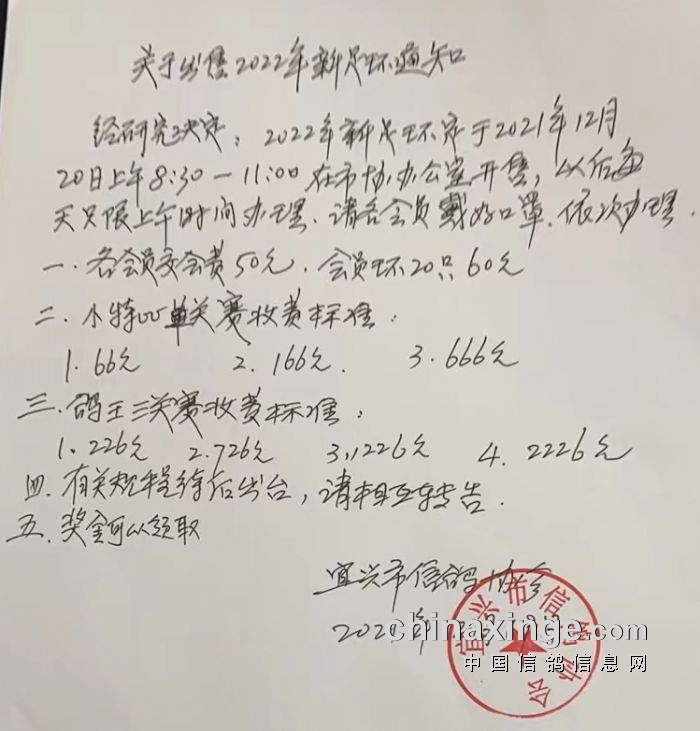 关于出售2022年新足环通知
经研究决定：2022年新足环定于2021年12月
20日上午8:30—11:00在市协办公室开售，以后每
天只限上午时间办理.请各会员戴好口罩.依次办理.
一.各会员交会费50元.会员环20只60元
二.小特叫单关赛收费标准：
1.66元 2.166元. 3.666元
三.鸽王三关赛收费标准：
1.226元 2.726元 3.1226元 4.2226元
四.有关规程待后出台，请相互转告.
五.奖金可以领取
宜兴市信鸽协会
宜兴市信鸽协会
chinaxinge.com
中国信鸽信息网